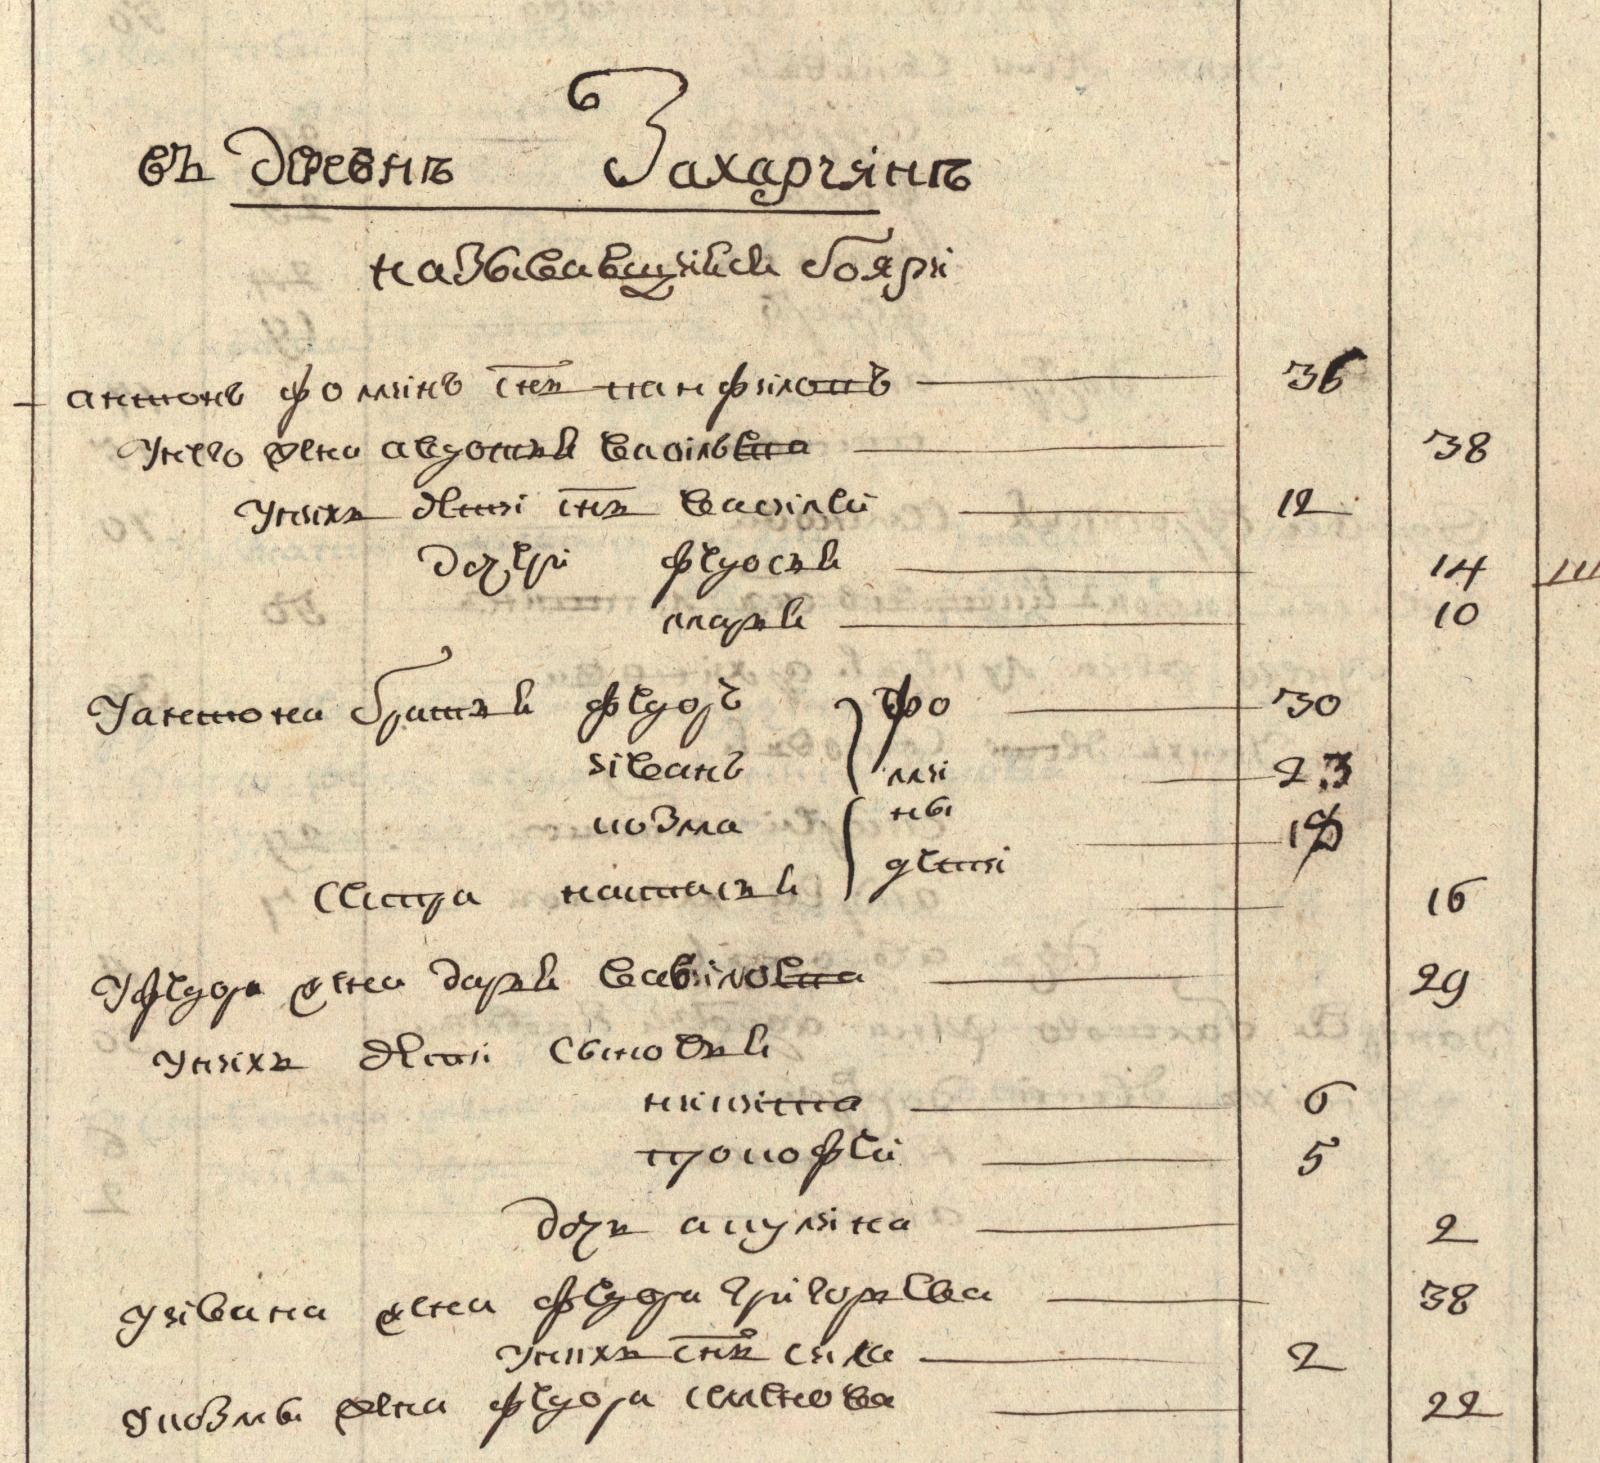 въ деревнѣ Захарчинѣ
называвшийся бояри
антонъ фоминъ снъ панфиловъ 36
у него жена авдотья васильевна 38
у нихъ дети снъ василей 12
дочери федосья 14
марья 10
у антона братья федоръ фо 30
иванъ ми 23
козма ны 18
сестра настасья дети 16
у федора жена дарья вавиловна 29
у нихъ дети сыновья
никита 6
прокофей 5
дочь акулина 2
у ивана жена федора григорьева 38
у нихъ снъ сила 2
у козмы жена федора семенова 22